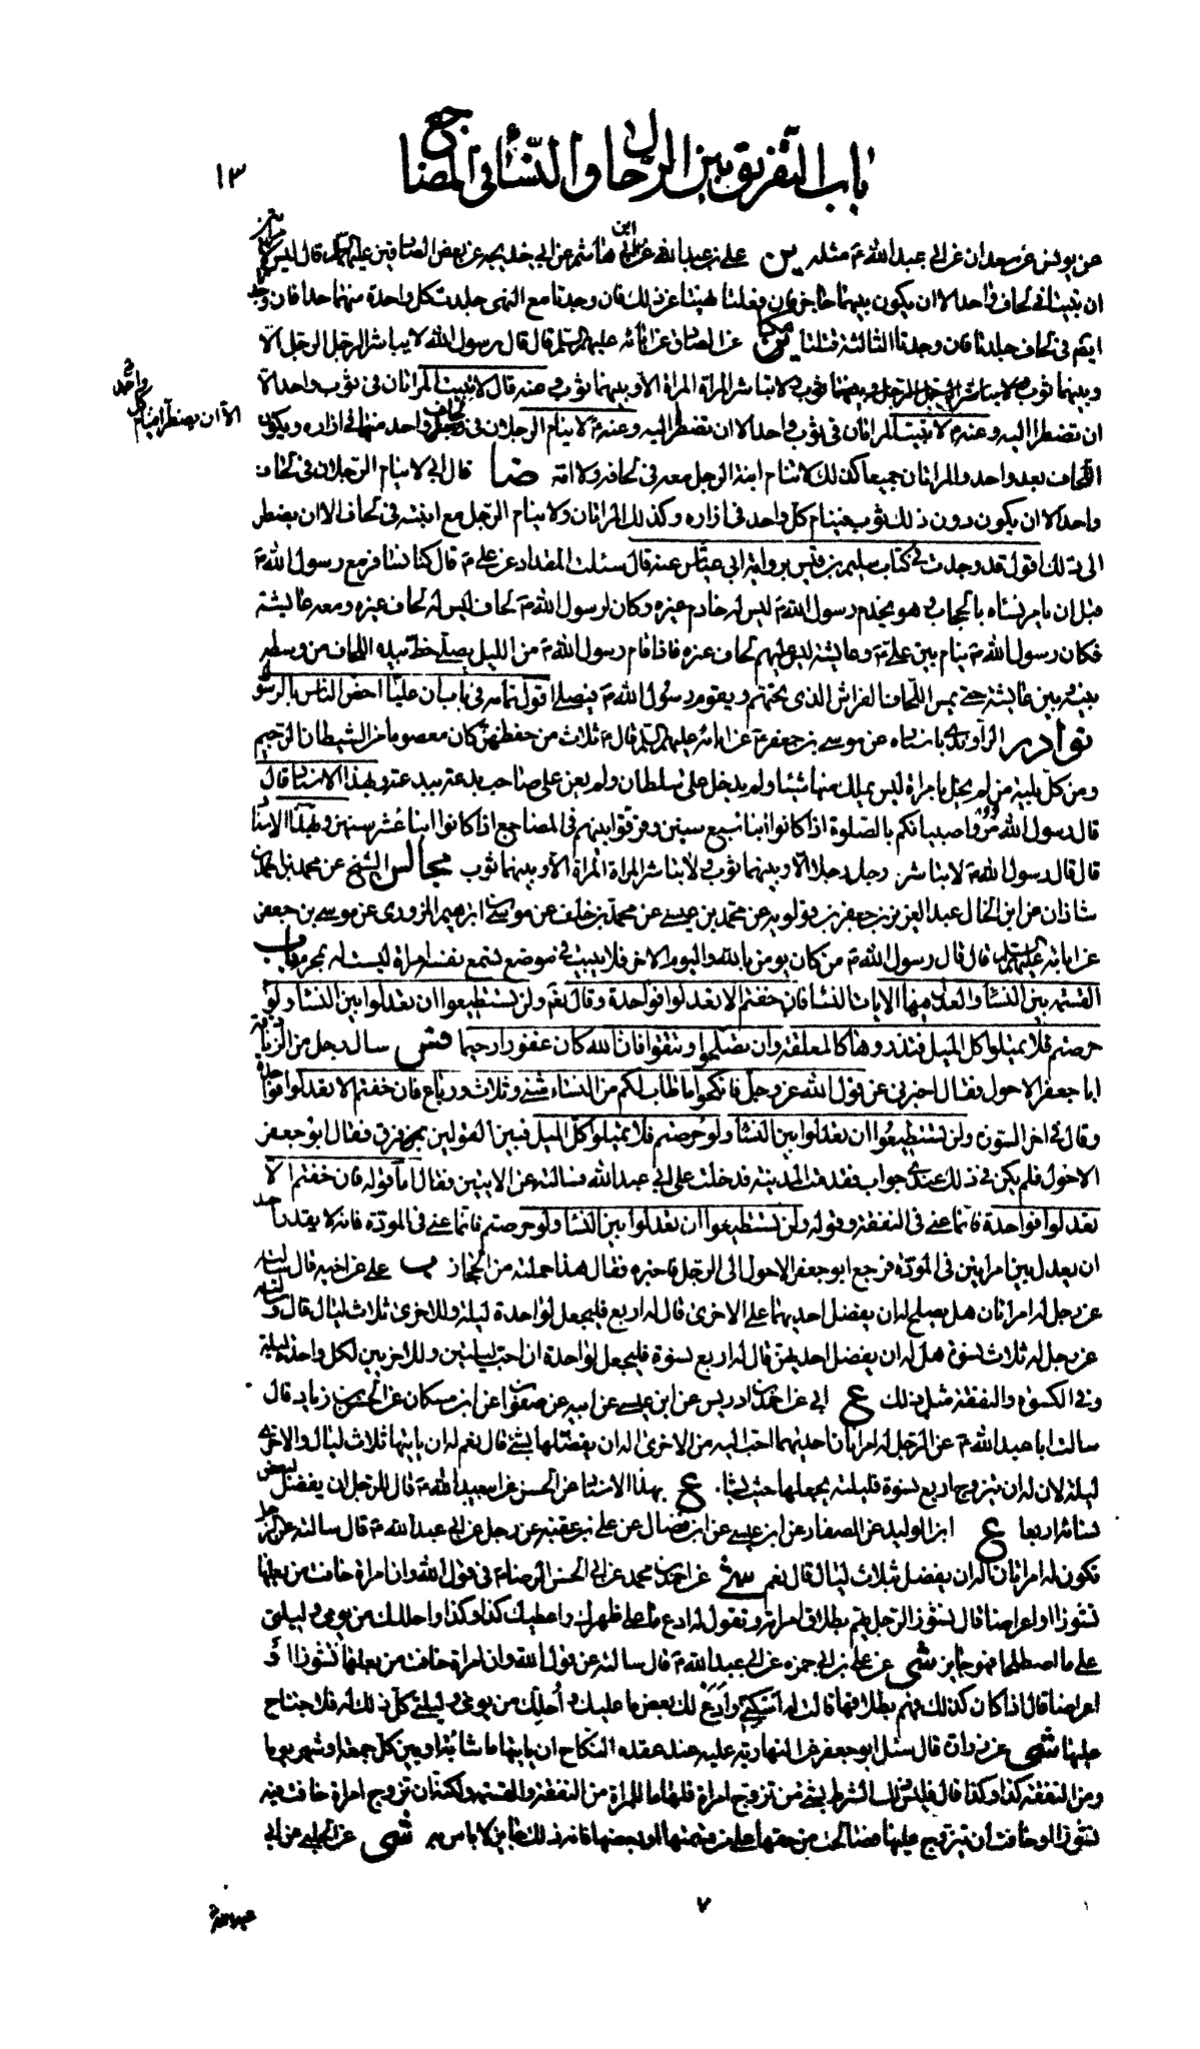 باب التفريق بين الرجال والنساء في المضاجع
١٣
عن يونس عن سعدان عن ابي عبد الله ع مثله ين علي بن عبد الله عن ابن ابي هاشم عن ابي خديجة عن بعض الصادقين عليهم السلم قال ليس
ان تبيتا في لحاف واحد الا ان يكون بينهما حاجز فان فعلتا نهيتا عن ذلك فان وجدتا مع النهي جلدت كل واحدة منهما حدا فان وجد
ايضم في لحاف جلدتا فان وجدتا الثالثة قتلتا مكا عن الصادق عن ابائه عليهم السلم قال قال رسول الله لا يباشر الرجل الرجل الا
وبينهما ثوب ولا تباشر المراة المراة الا وبينهما ثوب وعنه قال لا تبيت المراتان في ثوب واحد الا
ان تضطرا اليه وعنه ع لا تبيت المراتان في ثوب واحد الا ان تضطرا اليه وعنه ع لا ينام الرجلان في لحاف واحد منهما في ازاره ويكون
اللحاف بعد واحد والمراتان جميعا كذلك لا تنام ابنة الرجل معه في لحافه ولا امه ضا قال ابي لا ينام الرجلان في لحاف
واحد الا ان يكون دون ذلك ثوب فينام كل واحد في ازاره وكذلك المراتان ولا ينام الرجل مع ابنته في لحاف الا ان يضطر
الى ذلك اقول قد وجدت في كتاب سليم بن قيس برواية ابن ابي عياش عنه قال سئلت المقداد عن علي ع قال كنا نسافر مع رسول الله ص
قبل ان يامر نساءه بالحجاب وهو يخدم رسول الله ص ليس له خادم غيره وكان لرسول الله ص لحاف ليس له لحاف غيره ومعه عايشة
فكان رسول الله ص ينام بين علي ع وعايشة ليس عليهم لحاف غيره فاذا قام رسول الله ص من الليل يصلي حط بيده اللحاف من وسطه
بينه وبين عايشة حتى يمس اللحاف الفراش الذي تحتهم ويقوم رسول الله ص فيصلي اقول تمامه في باب ان عليا اخص الناس بالرسول
نوادر الراوندي باسناده عن موسى بن جعفر ع عن ابائه عليهم السلم قال قال ع ثلاث من حفظهن كان معصوما من الشيطان الرجيم
ومن كل بلية من لم يخل بامراة ليس يملك منها شيئا ولم يدخل على سلطان ولم يعن على صاحب بدعة ببدعته وبهذا الاسناد قال
قال رسول الله ص مروا صبيانكم بالصلوة اذا كانوا ابناء سبع سنين وفرقوا بينهم في المضاجع اذا كانوا ابناء عشر سنين وبهذا الاسناد
قال قال رسول الله ص لا يباشر رجل رجلا الا وبينهما ثوب ولا تباشر المراة المراة الا وبينهما ثوب مجالس الشيخ عن محمد بن احمد بن
شاذان عن ابن الخال عبد العزيز بن جعفر بن قولويه عن محمد بن عيسى عن محمد بن خلف عن موسى بن ابرهيم المروزي عن موسى بن جعفر
عن ابائه عليهم السلم قال قال رسول الله ص من كان يومن بالله واليوم الاخر فلا يبيت في موضع تسمع نفسه امراة ليست له بمحرم باب
القسمة بين النساء والعدل فيها الايات النساء فان خفتم الا تعدلوا فواحدة وقال تعم ولن تستطيعوا ان تعدلوا بين النساء ولو
حرصتم فلا تميلوا كل الميل فتذروها كالمعلقة وان تصلحوا وتتقوا فان الله كان غفورا رحيما فس سال رجل من الزنادقة
ابا جعفر الاحول فقال اخبرني عن قول الله عز وجل فانكحوا ما طاب لكم من النساء مثنى وثلاث ورباع فان خفتم الا تعدلوا فواحدة
وقال في اخر السورة ولن تستطيعوا ان تعدلوا بين النساء ولو حرصتم فلا تميلوا كل الميل فبين القولين فرق فقال ابو جعفر
الاحول فلم يكن في ذلك عندي جواب فقدمت المدينة فدخلت على ابي عبد الله فسالته عن الايتين فقال اما قوله فان خفتم الا
تعدلوا فواحدة فانما عنى في النفقة وقوله ولن تستطيعوا ان تعدلوا بين النساء ولو حرصتم فانما عنى في المودة فانه لا يقدر احد
ان يعدل بين امراتين في المودة فرجع ابو جعفر الاحول الى الرجل فاخبره فقال هذا حملته من الحجاز ب علي عن اخيه قال سالته
عن رجل له امراتان هل يصلح له ان يفضل احديهما على الاخرى قال له اربع فليجعل لواحدة ليلة وللاخرى ثلاث ليال قال وسالته
عن رجل له ثلاث نسوة هل له ان يفضل احديهن قال له اربع نسوة فليجعل لواحدة ان احب ليلتين وللاخريين لكل واحدة ليلة
وفي الكسوة والنفقة مثل ذلك ع ابي عن احمد بن ادريس عن ابن عيسى عن ابيه عن صفوان عن ابن مسكان عن الحسن بن زياد قال
سالت ابا عبد الله ع عن الرجل له امراتان احديهما احب اليه من الاخرى اله ان يفضلها بشيء قال نعم له ان ياتيها ثلاث ليال والاخرى
ليلة لان له ان يتزوج اربع نسوة فليلته يجعلها حيث يشاء. ع بهذا الاسناد عن الحسن عن ابي عبد الله ع قال للرجل ان يفضل بعض
نسائه اربعا ع ابن الوليد عن الصفار عن ابن عيسى عن ابن فضال عن علي بن عقبة عن رجل عن ابي عبد الله ع قال سالته عن الرجل
تكون له امراتان اله ان يفضل ثلاث ليال قال نعم شي عن احمد بن محمد عن ابي الحسن الرضا ع في قول الله وان امراة خافت من بعلها
نشوزا او اعراضا قال نشوز الرجل يهم بطلاق امراته وتقول له ادع ما على ظهرك واعطيك كذا وكذا واحللك من يومي وليلتي
على ما اصطلحا فهو جايز شي عن علي بن ابي حمزه عن ابي عبد الله ع قال سالته عن قول الله وان امراة خافت من بعلها نشوزا او
اعراضا قال اذا كان كذلك فهم بطلاقها قالت له امسكني وادع لك بعض ما عليك واحلك من يومي وليلتي كل ذلك له فلا جناح
عليهما شي عن زرارة قال سئل ابو جعفر عن النهارية يشترط عليه عند عقده النكاح ان ياتيها ما شاء نهارا وبين كل جمعة او شهر يوما
ومن النفقة كذا وكذا قال فليس ذلك الشرط بشيء من تزوج امراة فلها ما للمراة من النفقة والقسمة ولكنه ان تزوج امراة خافت فيه
نشوزا او خافت ان يتزوج عليها فصالحت من حقها على شيء من قسمتها او بعضها فان ذلك جايز لا باس به شي عن الحلبي عن ابي
٧
عبد الله ع